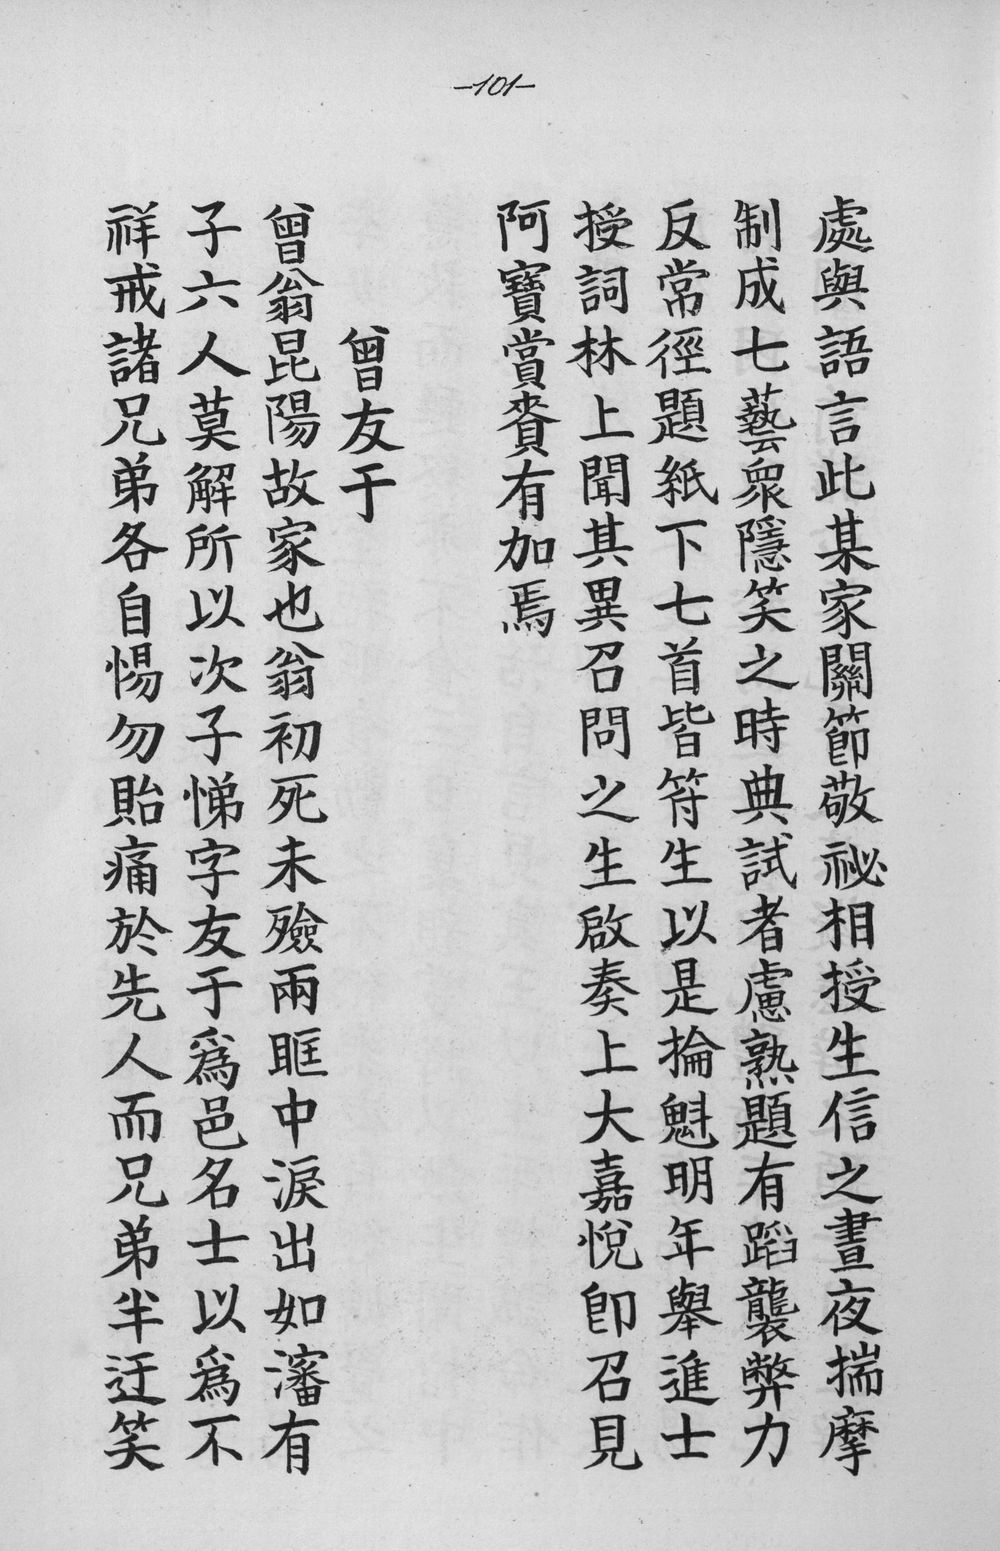 -101-
處與語言此某家關節敬祕相授生信之晝夜揣摩
制成七藝衆隱笑之時典試者慮熟題有蹈襲弊力
反常徑題紙下七首皆符生以是掄魁明年舉進士
授詞林上聞其異召問之生啟奏上大嘉悅卽召見
阿寶賞賚有加焉
曾友于
曾翁昆陽故家也翁初死未殮兩眶中淚出如瀋有
子六人莫解所以次子悌字友于爲邑名士以爲不
祥戒諸兄弟各自惕勿貽痛於先人而兄弟半迂笑